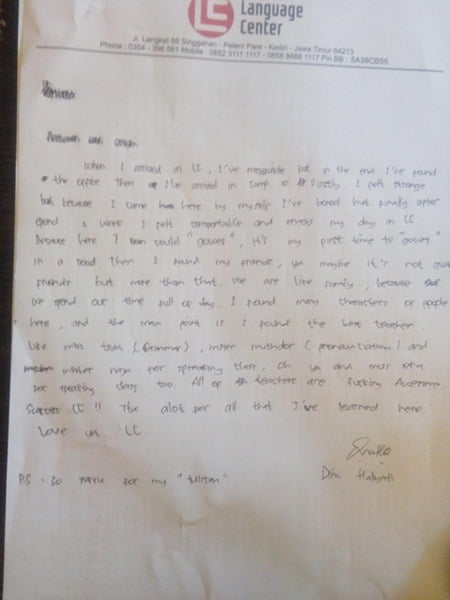 LC Language
Center
Jl. Langkat 88 Singgahan - Pelem Pare - Kediri - Jawa Timur 64213
Phone : 0354 - 396 561 Mobile : 0852 3111 1117 - 0856 8888 1117 Pin BB : 5A38CB55
When I arrived in LC, I've but in the end I've found
the office then I've arrived in camp 10. Firstly I felt strange
because I came here by myself. I've bored but finally after
spend 2 week I felt comfortable and enjoy my day in LC
Because here I could "gowes", it's my first time to "gowes"
in a road. Then I found my friends, ya maybe it's not just
friends but more than that. we are like family, because
we spend our time full of day. I found many characters of people
here, and the main point is I found the best teacher.
Like miss (Grammar), mister (pronunciation) and
mister for spreaking class, oh ya and miss
for speaking class too. All of teachers are fucking Awesome
Success LC !! Thx alot for all that I've learned here
Love you LC.
P.S : So sorry for my "tulisan"